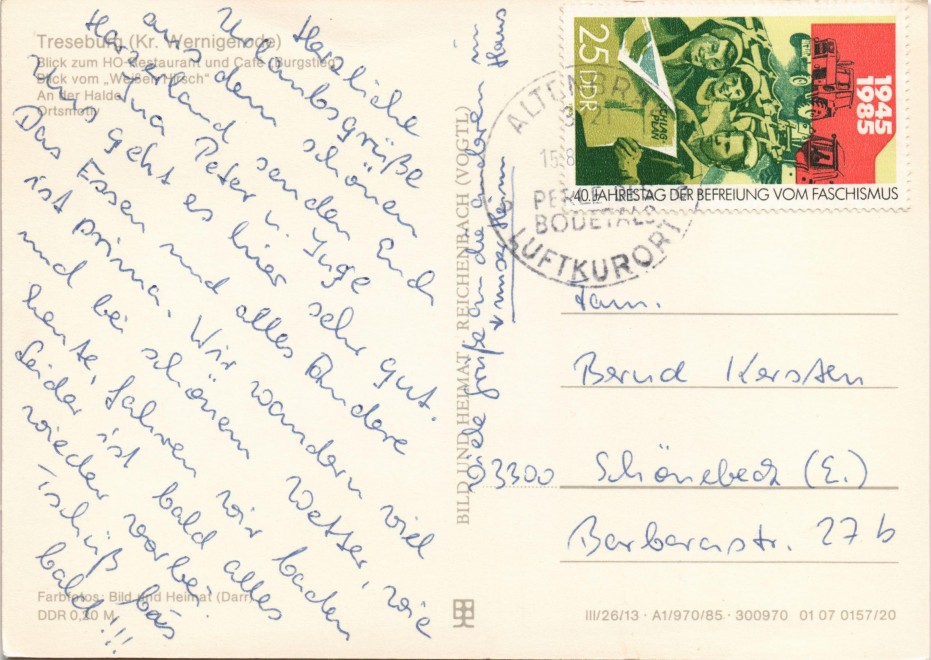 Treseburg (Kr. Wernigerode)
Blick zum HO-Restaurant und Café „Burgstieg“
Blick vom „Weißen Hirsch“
An der Halde
Ortsmotiv
Herzliche
Urlaubsgrüße
aus dem schönen
Harzland senden Euch
Ina Peter u. Inge
Uns geht es hier sehr gut.
Das Essen und alles Andere
ist prima. Wir wandern viel
und bei schönem Wetter, wie
heute, fahren wir baden
Leider ist bald alles
wieder vorbei
Tschüß bis
bald!!!
Farbfotos: Bild und Heimat (Darr)
DDR 0,20 M
BILD UND HEIMAT · REICHENBACH (VOGTL)
Viele Grüße an die anderen in
unser Haus
25 DDR
SCHLAG
PLAN
1945
1985
40. JAHRESTAG DER BEFREIUNG VOM FASCHISMUS
PERLE DES
BODETALS
LUFTKURORT
Fam.
Bernd Kersten
3300 Schönebeck (E.)
Barbarastr. 27b
III/26/13 · A1/970/85 · 300970 01 07 0157/20